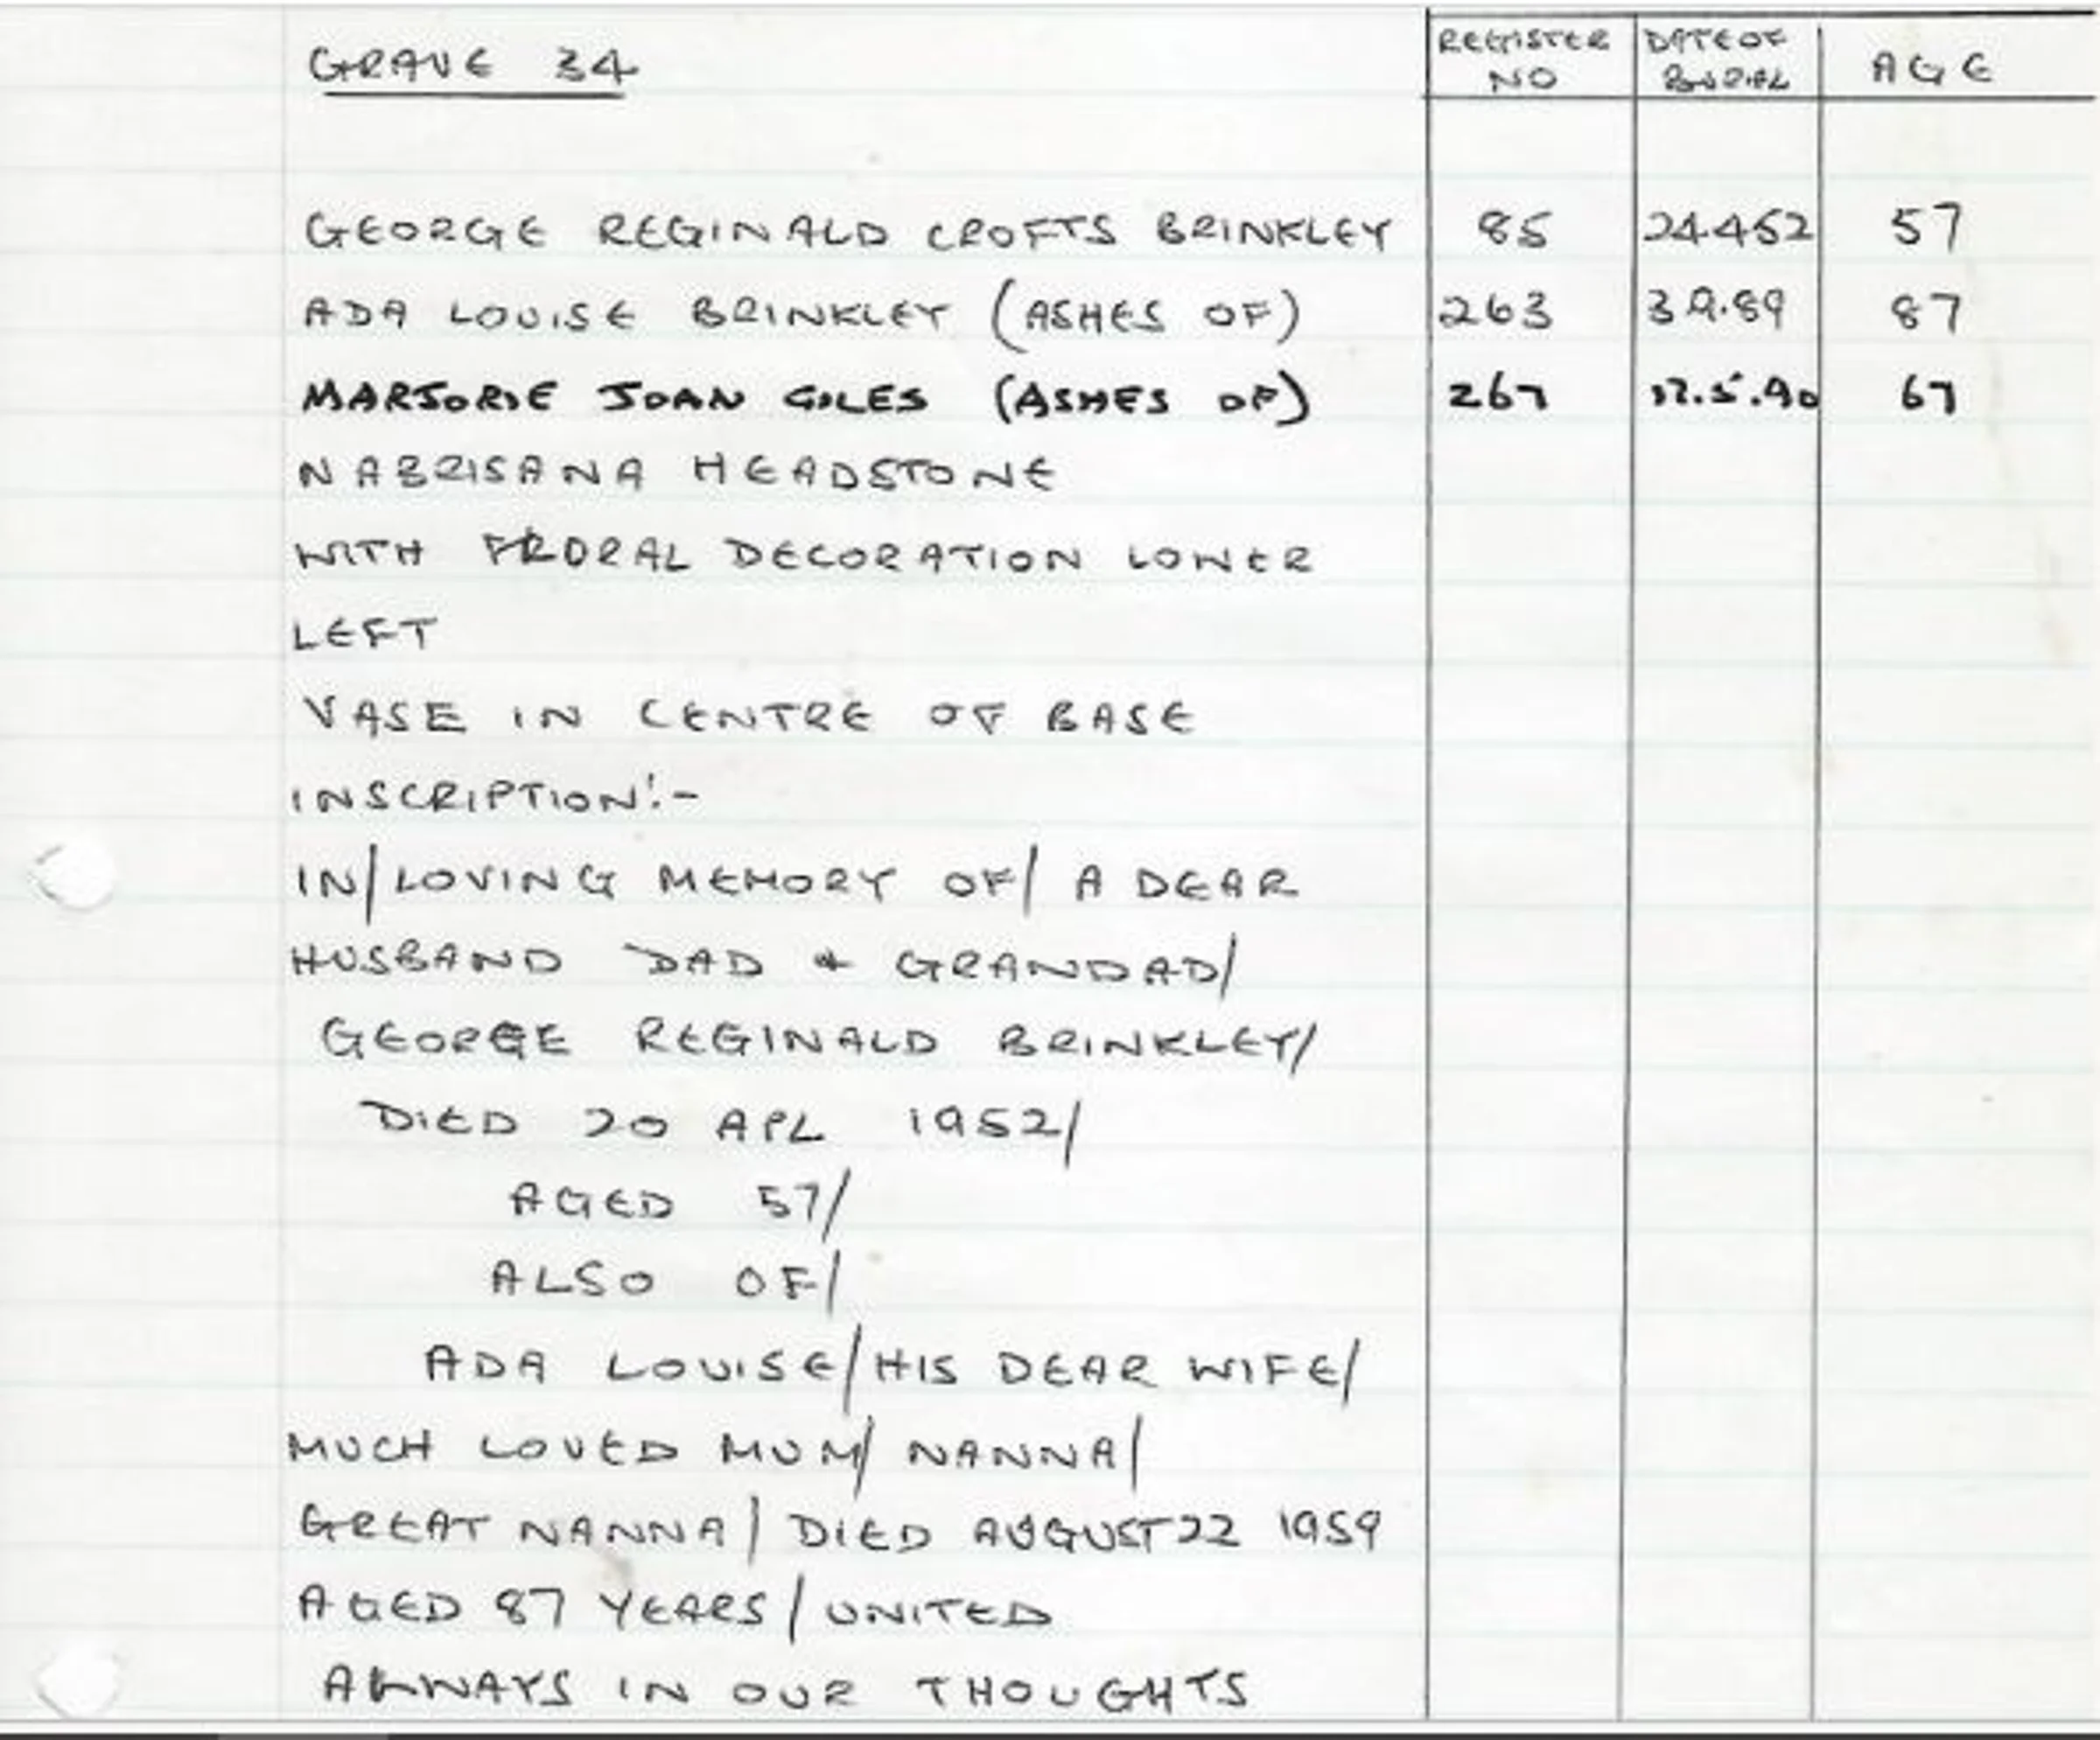 GRAVE 34
REGISTER NO
DATE OF BURIAL
AGE
GEORGE REGINALD CROFTS BRINKLEY 85 24.4.52 57
ADA LOUISE BRINKLEY (ASHES OF) 263 3.9.89 87
MARJORIE JOAN GILES (ASHES OF) 267 12.5.90 67
NABRISANA HEADSTONE
WITH FLORAL DECORATION LOWER
LEFT
VASE IN CENTRE OF BASE
INSCRIPTION:-
IN/LOVING MEMORY OF/ A DEAR
HUSBAND DAD & GRANDAD/
GEORGE REGINALD BRINKLEY/
DIED 20 APL 1952/
AGED 57/
ALSO OF/
ADA LOUISE/HIS DEAR WIFE/
MUCH LOVED MUM/ NANNA/
GREAT NANNA/ DIED AUGUST 22 1959
AGED 87 YEARS/ UNITED
ALWAYS IN OUR THOUGHTS